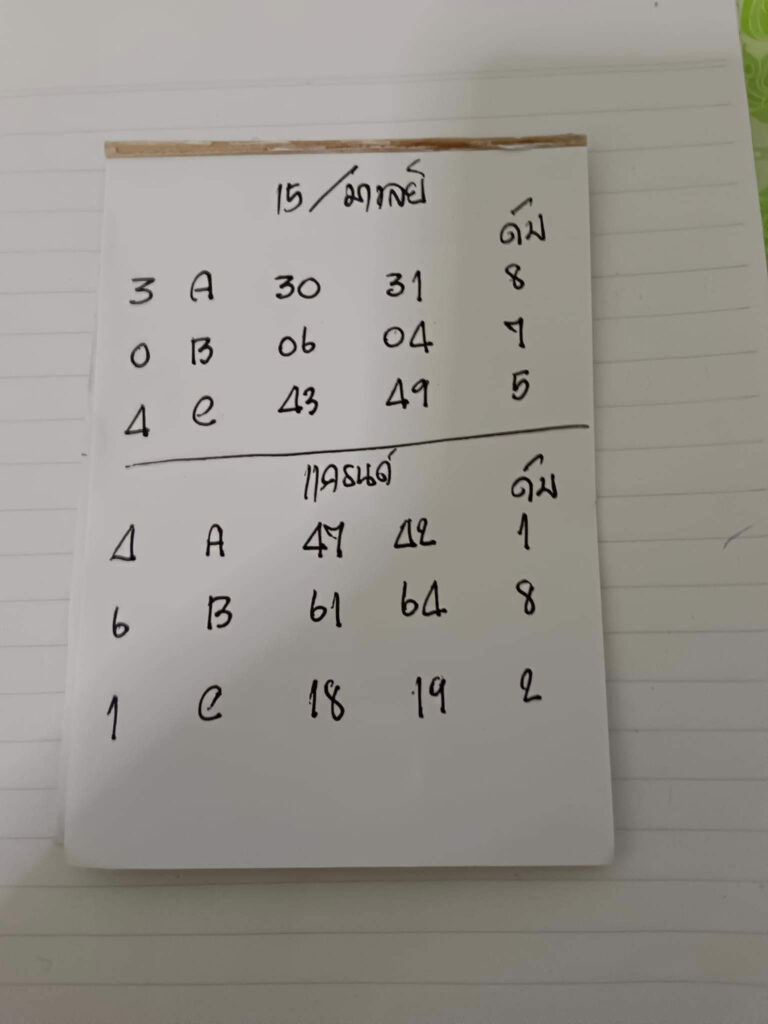 15/มาเลย์
ดับ
3 A 30 31 8
0 B 06 04 7
4 C 43 49 5
แครนด์ ดับ
4 A 47 42 1
6 B 61 64 8
1 C 18 19 2